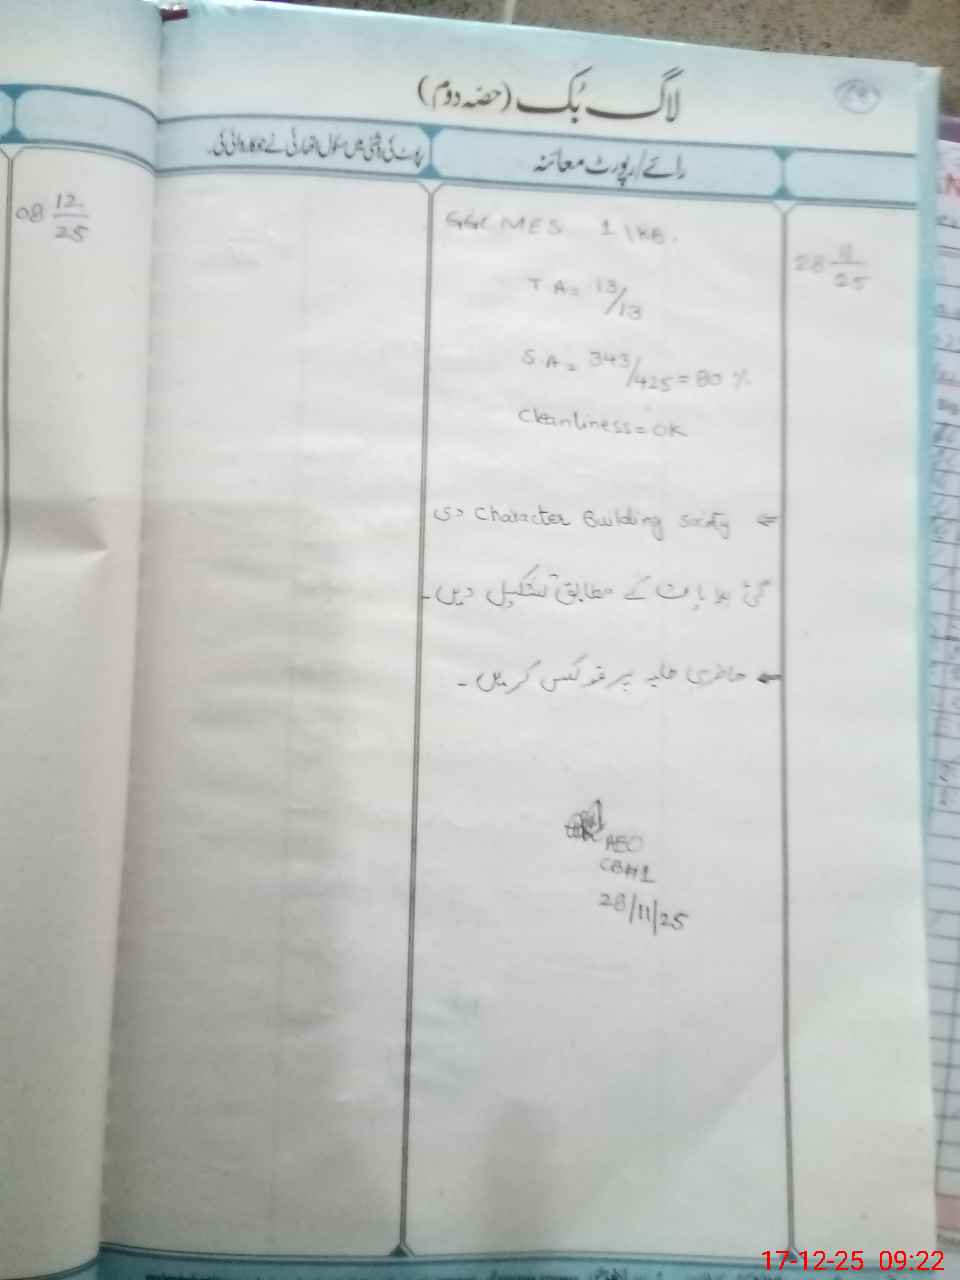 لاگ بک (حصّہ دوم)
رائے/رپورٹ معائنہ
رپورٹ کی روشنی میں سکول اتھارٹی نے جو کاروائی کی۔
28 11/25
GGCMES 1\KB.
T A = 13/13
S.A = 343/425 = 80 %
Cleanliness = OK
⇐ Character Building Society دی
گئی ہدایات کے مطابق تشکیل دیں۔
حاضری طلبہ پر فوکس کریں۔
AEO
CB#1
28/11/25
08 12/25
17-12-25 09:22